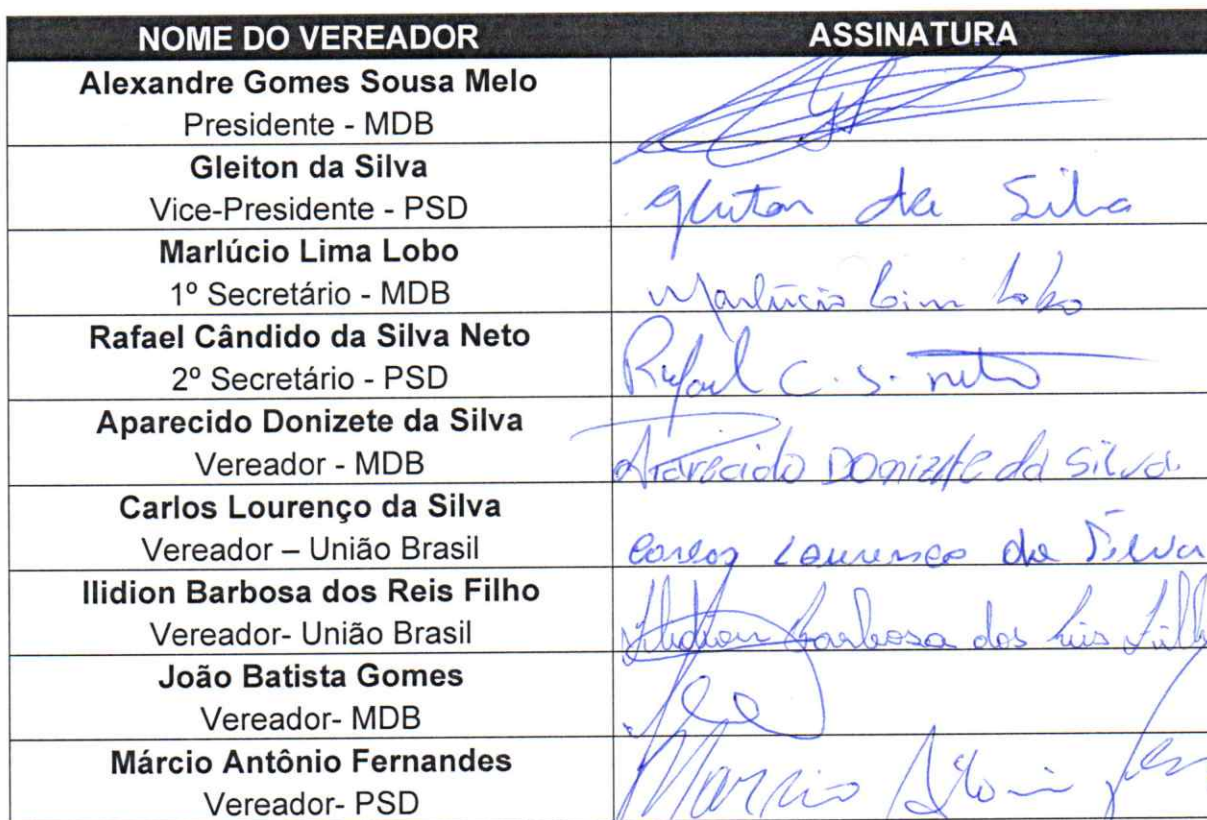 NOME DO VEREADOR ASSINATURA
Alexandre Gomes Sousa Melo
Presidente - MDB
Gleiton da Silva
Vice-Presidente - PSD
Gleiton da Silva
Marlúcio Lima Lobo
1º Secretário - MDB
Marlúcio Lima Lobo
Rafael Cândido da Silva Neto
2º Secretário - PSD
Rafael C. S. Neto
Aparecido Donizete da Silva
Vereador - MDB
Aparecido Donizete da Silva
Carlos Lourenço da Silva
Vereador – União Brasil
Carlos Lourenço da Silva
Ilidion Barbosa dos Reis Filho
Vereador- União Brasil
Ilidion Barbosa dos Reis
João Batista Gomes
Vereador- MDB
Márcio Antônio Fernandes
Vereador- PSD
Marcio